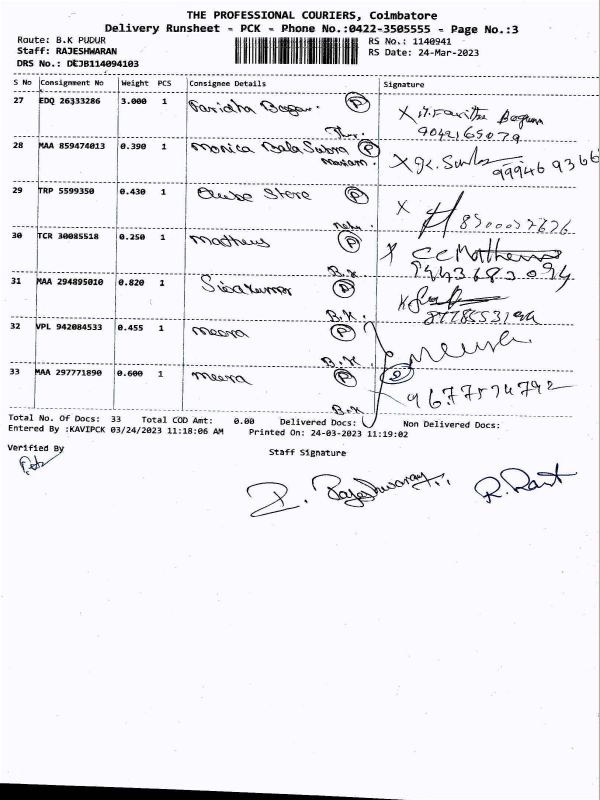 THE PROFESSIONAL COURIERS, Coimbatore
Delivery Runsheet - PCK - Phone No.:0422-3505555 - Page No.:3
Route: B.K PUDUR RS No.: 1140941
Staff: RAJESHWARAN RS Date: 24-Mar-2023
DRS No.: DEJB114094103
S No Consignment No Weight PCS Consignee Details Signature
27 EDQ 26333286 3.000 1 Faridha Begam. P
Begum
9042165079
28 MAA 859474013 0.390 1 Monica Bala Subra P
29 TRP 5599350 0.430 1 Store P
30 TCR 30085518 0.250 1 Matheus P CC Mathews
B.K 9443683094
31 MAA 294895010 0.820 1 Sivakumar P
B.K.
32 VPL 942084533 0.455 1 meera P
B.K
33 MAA 297771890 0.600 1 meera P 2
B.K 9677574792
Total No. Of Docs: 33 Total COD Amt: 0.00 Delivered Docs: Non Delivered Docs:
Entered By :KAVIPCK 03/24/2023 11:18:06 AM Printed On: 24-03-2023 11:19:02
Verified By
Staff Signature
Rajeshwaran